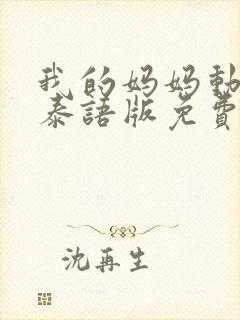 我的妈妈動
泰語版免費
沈再生